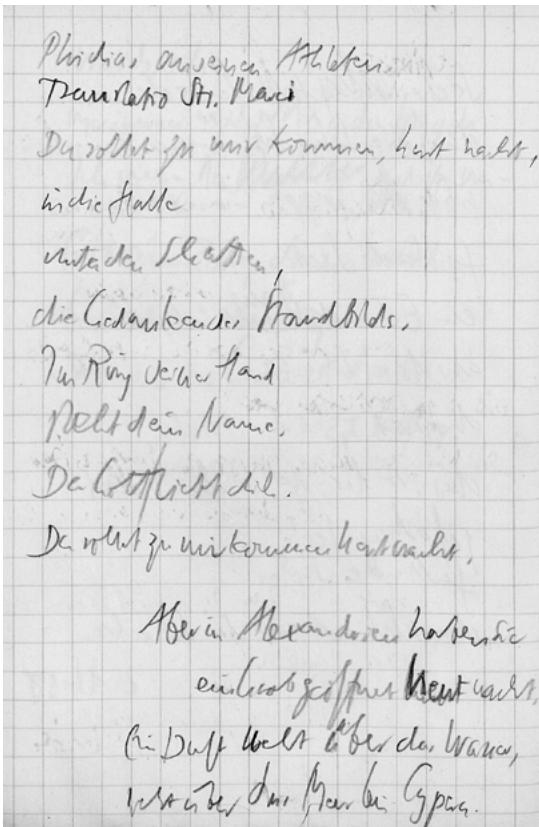 Phidias an seinen Athleten
Translatio Sti. Marci
Du sollst zu mir kommen, heut nacht,
in die Halle
unter den Schatten,
die Gedanken des Standbilds.
Im Ring deiner Hand
steht dein Name.
Der Gott sieht dich.
Du sollst zu mir kommen heut nacht.
Aber in Alexandrien haben sie
ein Grab geöffnet heut nacht.
Ein Duft weht über das Wasser,
weht über das Meer bis Cypern.